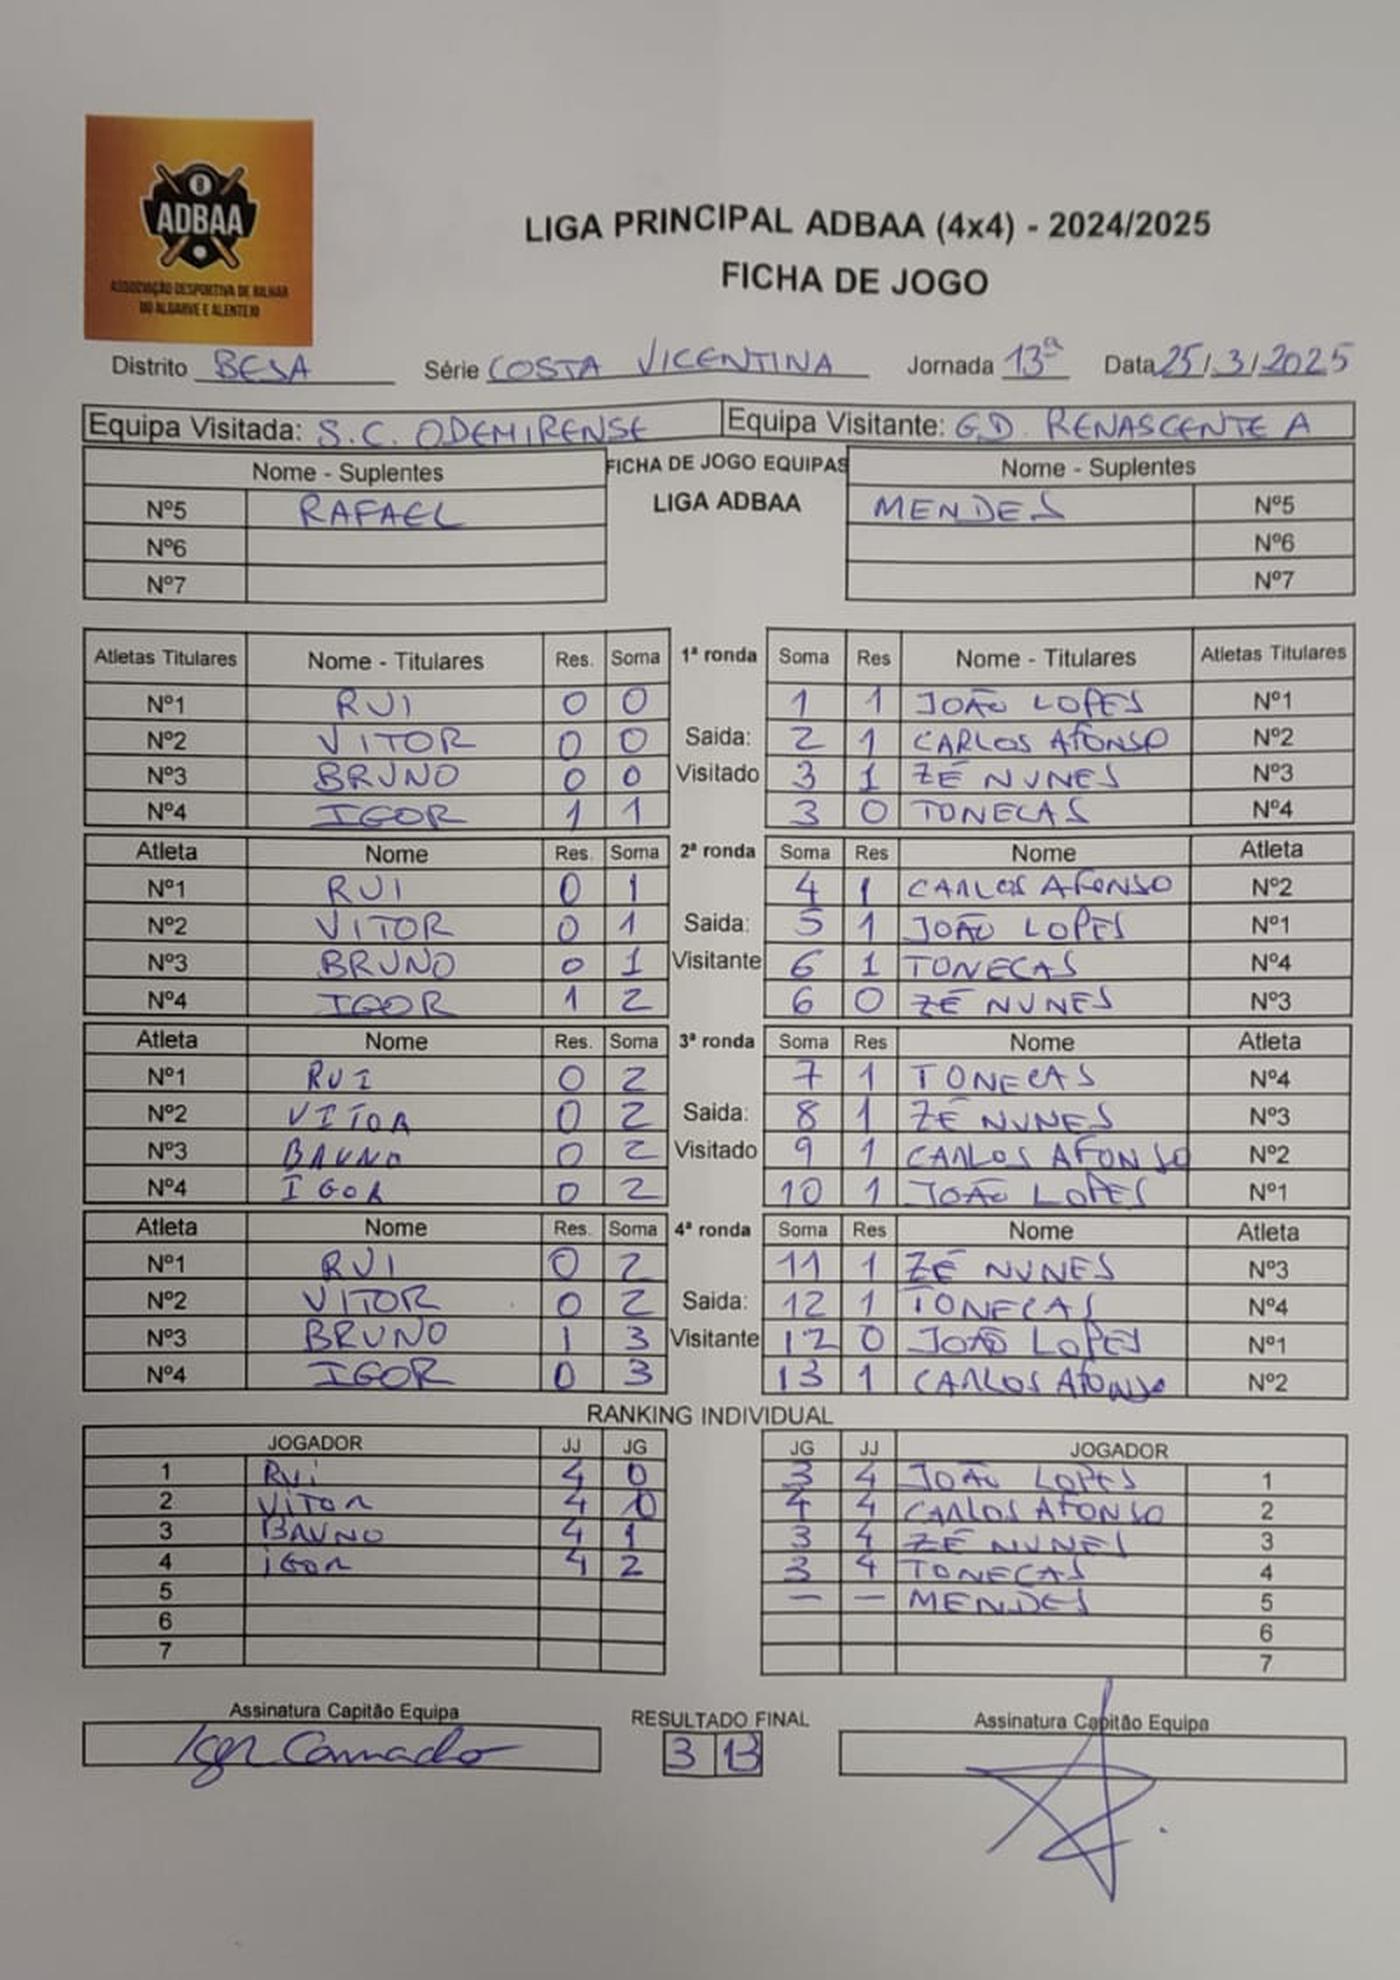 8
ADBAA
ASSOCIAÇÃO DESPORTIVA DE BILHAR
DO ALGARVE E ALENTEJO
LIGA PRINCIPAL ADBAA (4x4) - 2024/2025
FICHA DE JOGO
Distrito BEJA Série COSTA VICENTINA Jornada 13ª Data 25/3/2025
Equipa Visitada: S.C. ODEMIRENSE Equipa Visitante: G.D. RENASCENTE A
Nome - Suplentes FICHA DE JOGO EQUIPAS Nome - Suplentes
Nº5 RAFAEL LIGA ADBAA MENDES Nº5
Nº6 Nº6
Nº7 Nº7
Atletas Titulares Nome - Titulares Res. Soma 1ª ronda Soma Res Nome - Titulares Atletas Titulares
Nº1 RUI 0 0 1 1 JOÃO LOPES Nº1
Nº2 VITOR 0 0 Saida: 2 1 CARLOS AFONSO Nº2
Nº3 BRUNO 0 0 Visitado 3 1 ZÉ NUNES Nº3
Nº4 IGOR 1 1 3 0 TONECAS Nº4
Atleta Nome Res. Soma 2ª ronda Soma Res Nome Atleta
Nº1 RUI 0 1 4 1 CARLOS AFONSO Nº2
Nº2 VITOR 0 1 Saida: 5 1 JOÃO LOPES Nº1
Nº3 BRUNO 0 1 Visitante 6 1 TONECAS Nº4
Nº4 IGOR 1 2 6 0 ZÉ NUNES Nº3
Atleta Nome Res. Soma 3ª ronda Soma Res Nome Atleta
Nº1 RUI 0 2 7 1 TONECAS Nº4
Nº2 VITOR 0 2 Saida: 8 1 ZÉ NUNES Nº3
Nº3 BRUNO 0 2 Visitado 9 1 CARLOS AFONSO Nº2
Nº4 IGOR 0 2 10 1 JOÃO LOPES Nº1
Atleta Nome Res. Soma 4ª ronda Soma Res Nome Atleta
Nº1 RUI 0 2 11 1 ZÉ NUNES Nº3
Nº2 VITOR 0 2 Saida: 12 1 TONECAS Nº4
Nº3 BRUNO 1 3 Visitante 12 0 JOÃO LOPES Nº1
Nº4 IGOR 0 3 13 1 CARLOS AFONSO Nº2
RANKING INDIVIDUAL
JOGADOR JJ JG JG JJ JOGADOR
1 Rui 4 0 3 4 JOÃO LOPES 1
2 VITOR 4 0 4 4 CARLOS AFONSO 2
3 BRUNO 4 1 3 4 ZÉ NUNES 3
4 iGOR 4 2 3 4 TONECAS 4
5 — — MENDES 5
6 6
7 7
Assinatura Capitão Equipa RESULTADO FINAL Assinatura Capitão Equipa
Igor 3 13